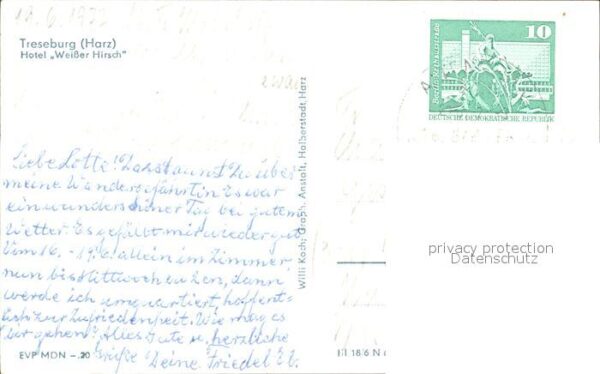 Treseburg (Harz)
Hotel „Weißer Hirsch"
Liebe Lotte! Da staunst Du über
meine Wandergefährtin Es war
ein wunderschöner Tag bei gutem
Wetter. Es gefällt mir wieder gut
Vom 16. - 19.6. allein im Zimmer,
nun bis Mittwoch
dann
werde ich umquartiert, hoffent-
lich zur Zufriedenheit. Wie mag es
Dir gehen? Alles Gute u. herzliche
Grüße Deine Friedel
EVP MDN –.20
Willi Koch, Graph. Anstalt, Halberstadt, Harz
III 18 6 N
10
Berlin, Rathausstraße
DEUTSCHE DEMOKRATISCHE REPUBLIK
privacy protection
Datenschutz